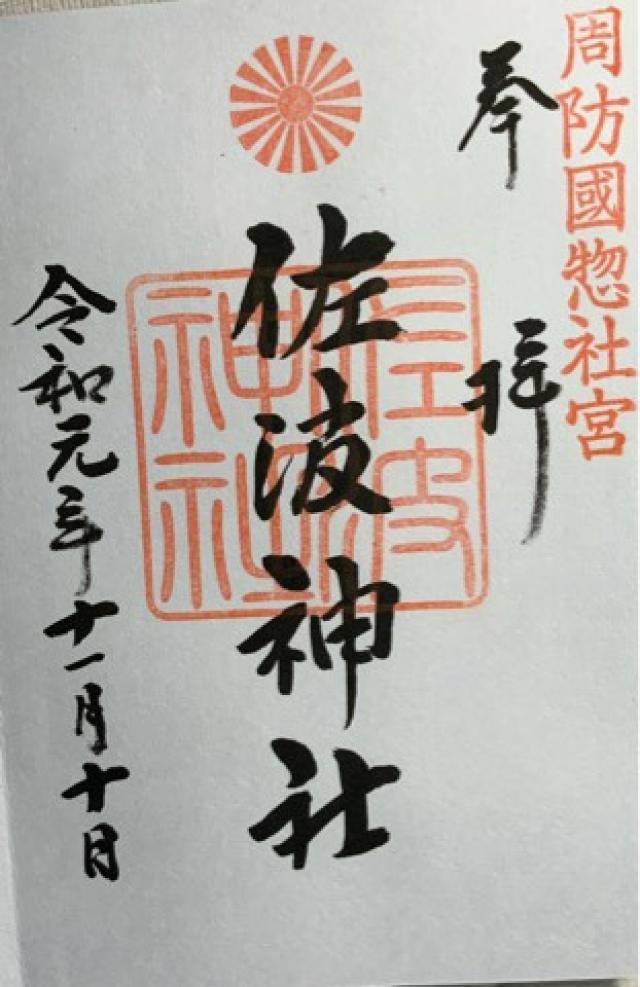 周防國惣社宮
奉拝
佐波神社
佐波神社
令和元年十一月十日